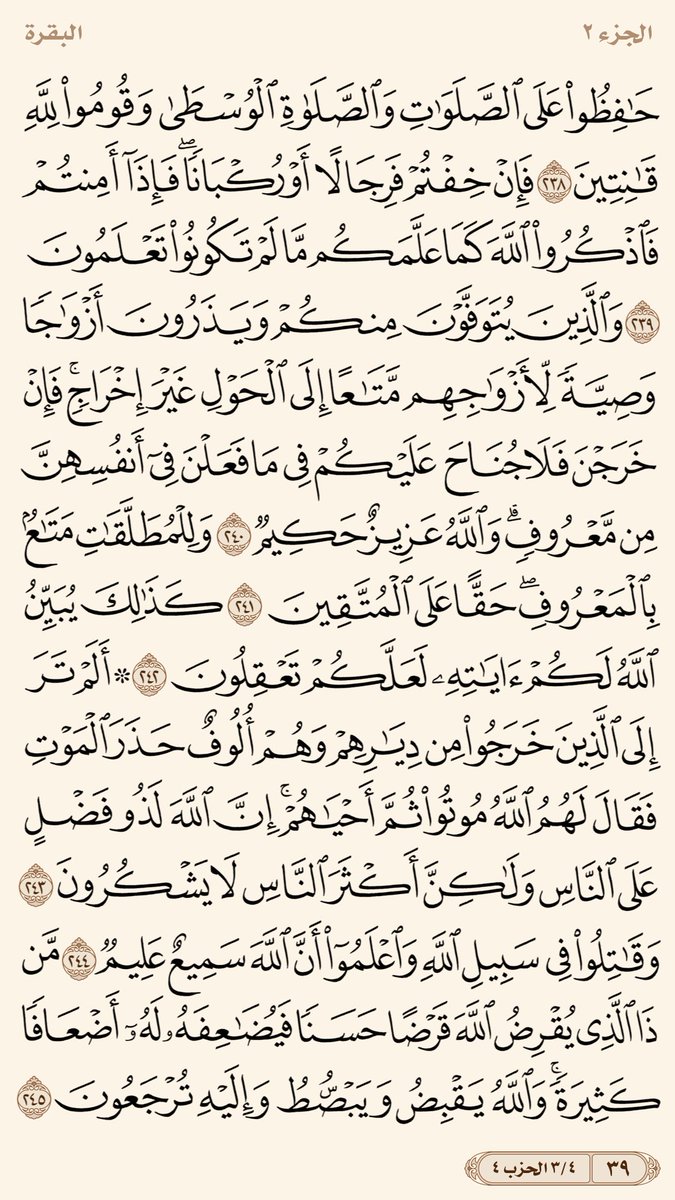 الجزء ٢
البقرة
حَٰفِظُوا۟ عَلَى ٱلصَّلَوَٰتِ وَٱلصَّلَوٰةِ ٱلْوُسْطَىٰ وَقُومُوا۟ لِلَّهِ
قَٰنِتِينَ ٢٣٨ فَإِنْ خِفْتُمْ فَرِجَالًا أَوْ رُكْبَانًا ۖ فَإِذَآ أَمِنتُمْ
فَٱذْكُرُوا۟ ٱللَّهَ كَمَا عَلَّمَكُم مَّا لَمْ تَكُونُوا۟ تَعْلَمُونَ
٢٣٩ وَٱلَّذِينَ يُتَوَفَّوْنَ مِنكُمْ وَيَذَرُونَ أَزْوَٰجًا
وَصِيَّةً لِّأَزْوَٰجِهِم مَّتَٰعًا إِلَى ٱلْحَوْلِ غَيْرَ إِخْرَاجٍ ۚ فَإِنْ
خَرَجْنَ فَلَا جُنَاحَ عَلَيْكُمْ فِى مَا فَعَلْنَ فِىٓ أَنفُسِهِنَّ
مِن مَّعْرُوفٍ ۗ وَٱللَّهُ عَزِيزٌ حَكِيمٌ ٢٤٠ وَلِلْمُطَلَّقَٰتِ مَتَٰعٌۢ
بِٱلْمَعْرُوفِ ۖ حَقًّا عَلَى ٱلْمُتَّقِينَ ٢٤١ كَذَٰلِكَ يُبَيِّنُ
ٱللَّهُ لَكُمْ ءَايَٰتِهِۦ لَعَلَّكُمْ تَعْقِلُونَ ٢٤٢ * أَلَمْ تَرَ
إِلَى ٱلَّذِينَ خَرَجُوا۟ مِن دِيَٰرِهِمْ وَهُمْ أُلُوفٌ حَذَرَ ٱلْمَوْتِ
فَقَالَ لَهُمُ ٱللَّهُ مُوتُوا۟ ثُمَّ أَحْيَٰهُمْ ۚ إِنَّ ٱللَّهَ لَذُو فَضْلٍ
عَلَى ٱلنَّاسِ وَلَٰكِنَّ أَكْثَرَ ٱلنَّاسِ لَا يَشْكُرُونَ ٢٤٣
وَقَٰتِلُوا۟ فِى سَبِيلِ ٱللَّهِ وَٱعْلَمُوٓا۟ أَنَّ ٱللَّهَ سَمِيعٌ عَلِيمٌ ٢٤٤ مَّن
ذَا ٱلَّذِى يُقْرِضُ ٱللَّهَ قَرْضًا حَسَنًا فَيُضَٰعِفَهُۥ لَهُۥٓ أَضْعَافًا
كَثِيرَةً ۚ وَٱللَّهُ يَقْبِضُ وَيَبْصُۜطُ وَإِلَيْهِ تُرْجَعُونَ ٢٤٥
٣٩
٣/٤ الحزب ٤